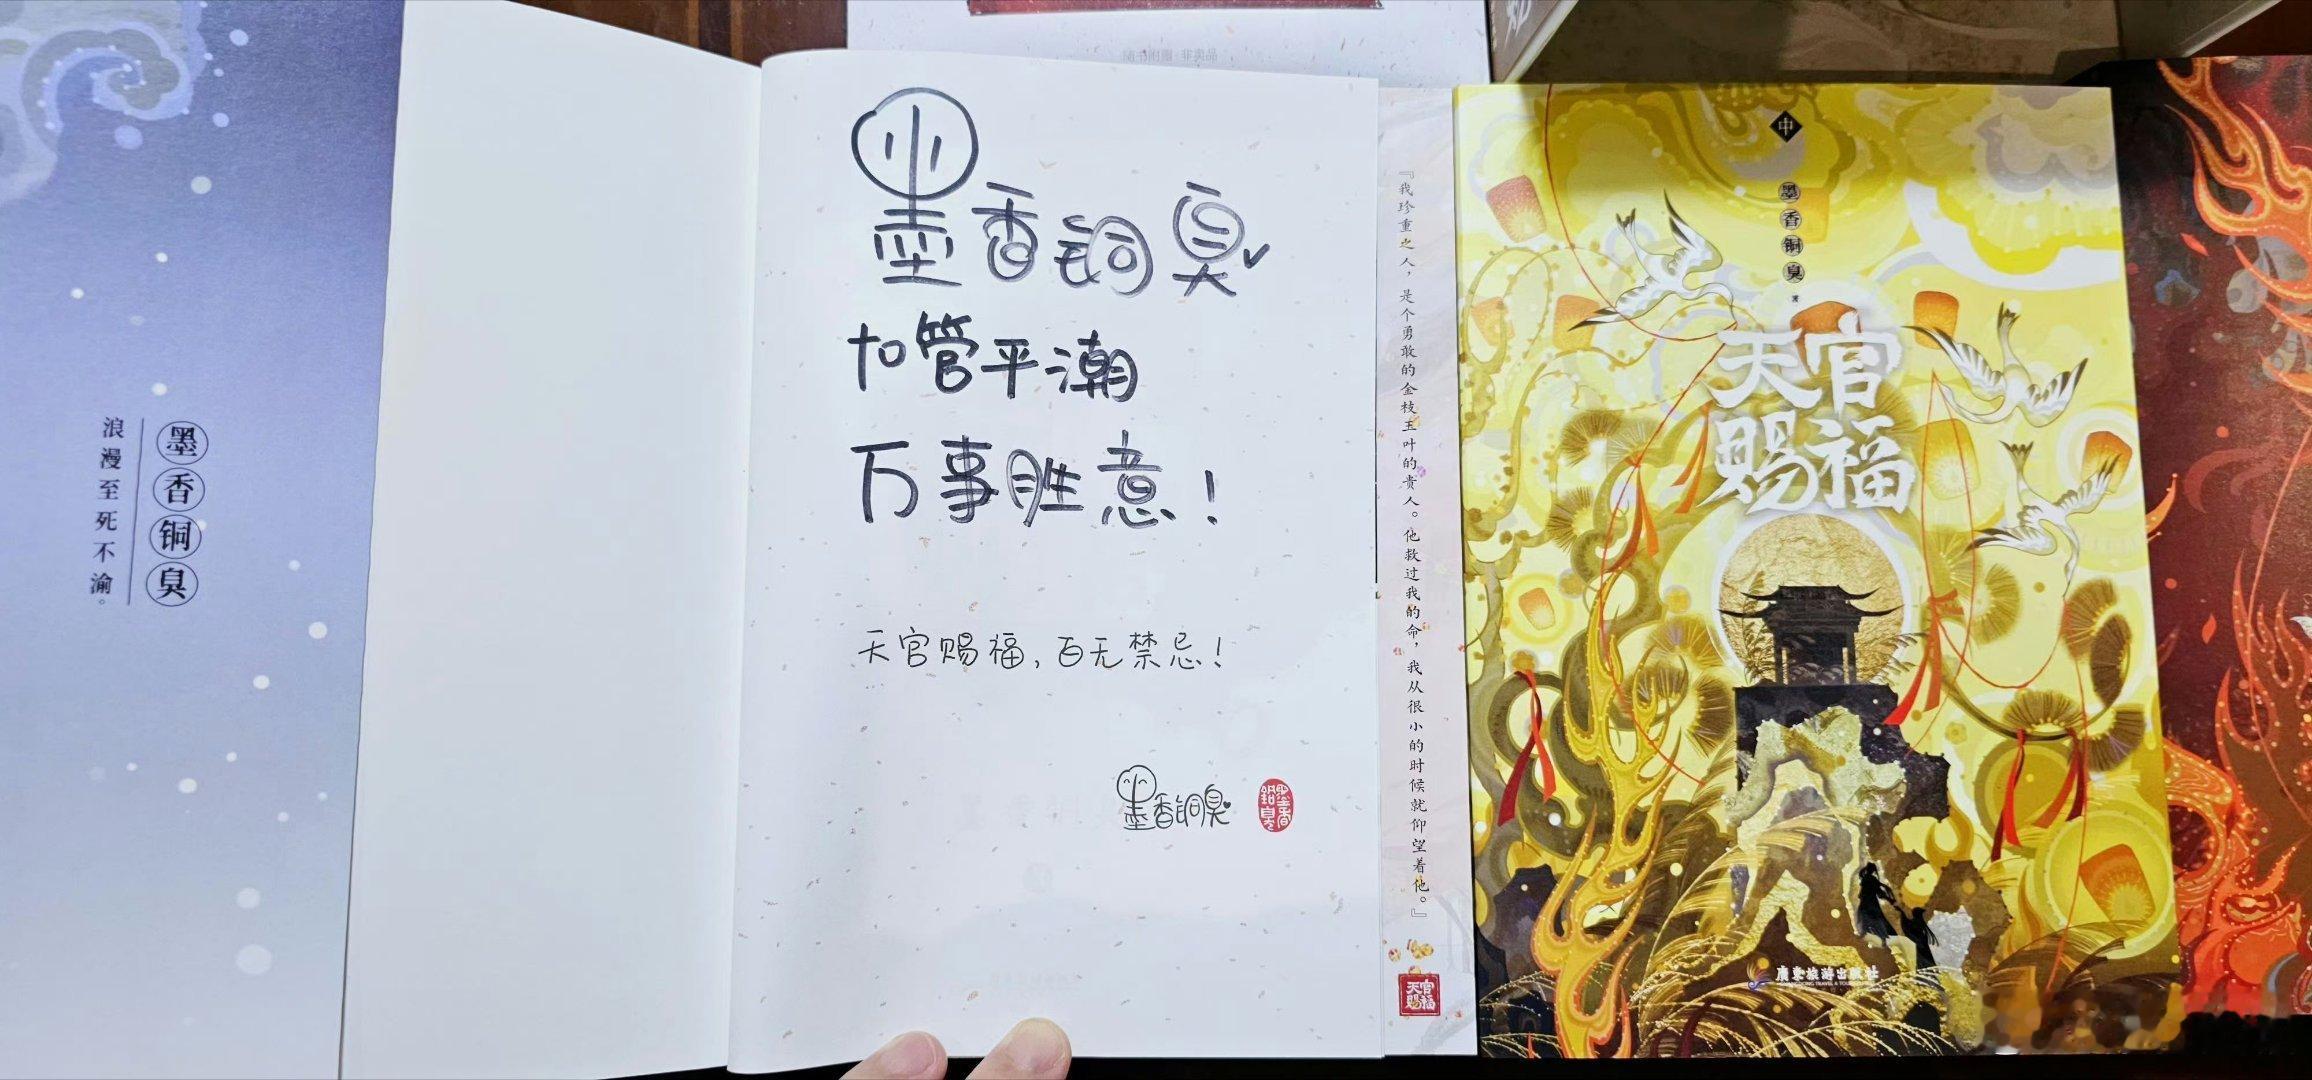 墨香铜臭
浪漫至死不渝。
随书附赠·非卖品
墨香铜臭
to管平潮
万事胜意！
天官赐福，百无禁忌！
墨香铜臭
墨香铜臭
『我珍重之人，是个勇敢的金枝玉叶的贵人。他救过我的命，我从很小的时候就仰望着他。』
天官赐福
中
墨香铜臭 著
天官
赐福
廣東旅游出版社
GUANGDONG TRAVEL & TOURISM PRESS